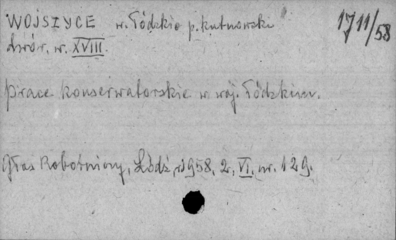 WOJSZYCE w. Łódzkie p. kutnowski 1711/58
dwór, w. XVIII.
Prace konserwatorskie w woj. Łódzkim.
Głos Robotniczy, Łódź, 1958, 2, VI, nr. 129.